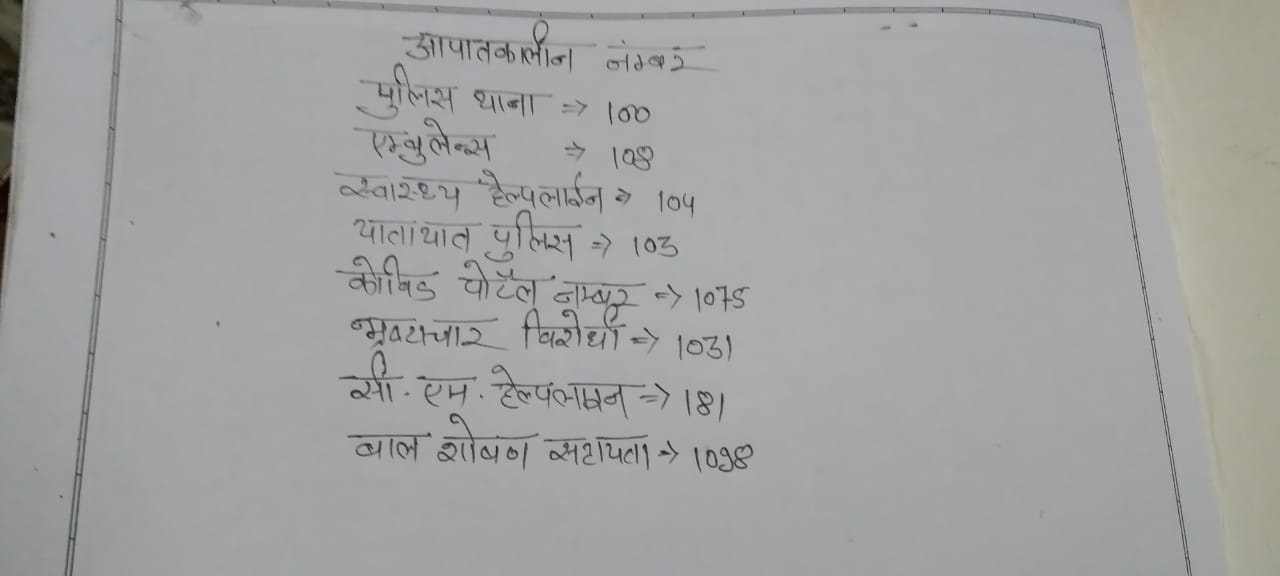 आपातकालीन नंम्बर
पुलिस थाना => 100
एम्बुलेन्स => 108
स्वास्थ्य हेल्पलाईन => 104
यातायात पुलिस => 103
कोविड पोर्टल नम्बर => 1075
भ्रष्टाचार विरोधी => 1031
सी. एम. हेल्पलाइन => 181
बाल शोषण सहायता => 1098